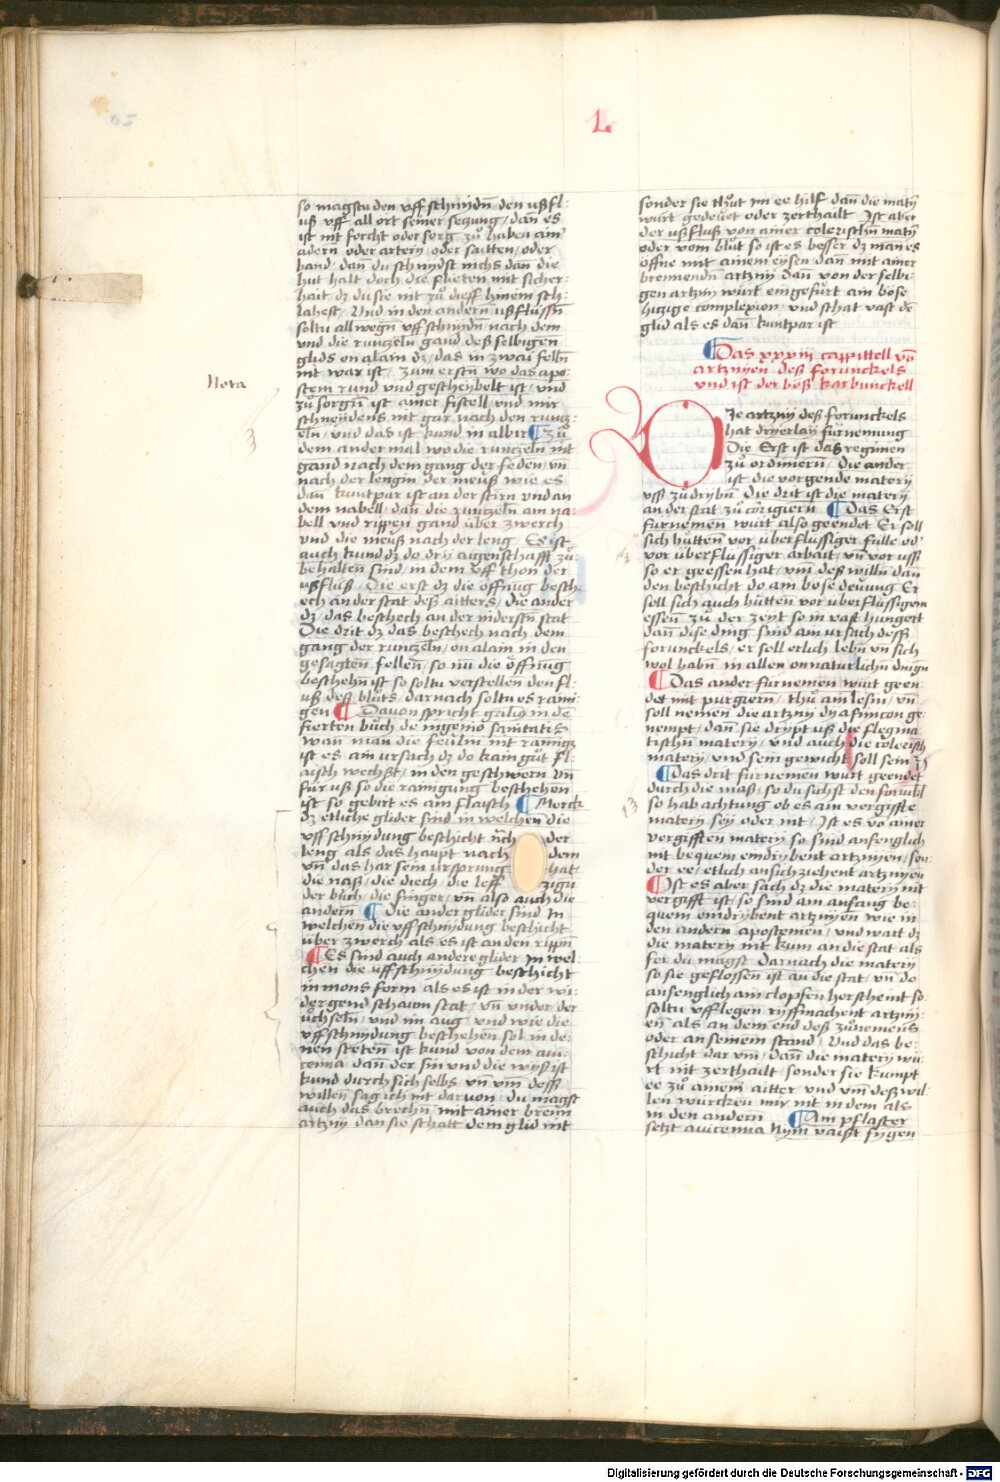 L
so magstu den uff schnydn̄ den ußfl:
uß uff all ort seiner setzung / dan̄ es
ist nit forcht oder sorg zů haben ain
adern oder artery / oder saitten / oder
band / dan̄ du schnydst nichs dan̄ die
hut halt doch die flieten mit sicher:
hait dz du sie nit zů dieff hinein sch:
lahest / Und in den andern̄ ußflüssn̄
soltu allwegn̄ uffschnydn̄ nach dem
und die runczeln̄ gand deß selbigen
glids on alain dz / das in zwai felln̄
nit war ist / zum ersten wo das apo
stem rund und gescheybelt ist / und
zů sorgn̄ ist ainer fistell / und mir
schneydens nit gar nach den runtz:
eln̄ / und das ist kund in albir ¶ zů
dem ander mal wo die runczeln̄ nit
gand nach dem gang der feden / un̄
nach der lengin der meuß wie es
dan̄ kuntpar ist an der stirn und an
dem nabell / dan̄ die runczeln̄ am na:
bell und rippen gand über zwerch
und die meuß nach der leng / Es ist
auch kund dz do dry aigenschafft zů
behalten sind / in dem uff thon der
ußfluß / Die erst dz die öffnūg besch:
ech an der stat deß aitters / die ander
dz / das beschech an der niderstn̄ stat
Die drit dz das beschech nach dem
gang der runczeln̄ / on alain in den
gesagten fellen / so nu die öffnūg
beschehn̄ ist so soltu verstellen den fl:
uß deß blůts / darnach soltu es raini
gen ¶ Davon spricht galiō in dē
fierten bůch de ingenio sanitatis
wan̄ man die feulin̄ nit rainigt
ist es ain ursach dz do kain gůt fl:
aisch wechßt / in den geschwern un̄
für uß so die rainigung beschehen
ist so gebirt es ain flaisch ¶ Merck
dz etliche glider sind in welchen die
uff schnydung beschicht nach der
leng als das haupt nach dem
un̄ das har sein ursprung hat
die naß / die diech / die leff zign
der bůch / die finger / un̄ also auch die
andern̄ ¶ die ander glider sind In
welchen die uffschnydung beschicht
über zwerch als es ist an den rippn̄
¶ Es sind auch andere glider in wel
chen die uffschnydung beschicht
in mons form als es ist in der wi:
dergend schaum stat / un̄ under der
ůchseln̄ / und im aug / und wie die
uffschnydung beschehen sol in de:
nen stetten̄ ist kund von dem avi:
cenna dan̄ der sin und die wyß ist
kund durch sich selbs / un̄ um̄ deß
willen sag ich nit darvon / du magst
auch das brechn̄ mit ainer bren̄n
artzny dan sie schatt dem glid nit
Nota
sonder sie thůt im ee hilf dan̄ die matȳ
wurt gedeuet oder zerthailt Ist aber
der ußfluß von ainer colerischn̄ matȳ
oder vom blůt so ist es besser dz man es
öffne mit ainem eysen / dan̄ mit ainer
brennendn̄ artzny dan̄ von der selbi:
gen artzny wurt eingefürt ain böse
hitzige complexion / und schat vast dē
glid als es dan̄ kuntpar ist
¶ Das xxxiii cappittell vō
artznyen deß forunckels
und ist der böß karbunckell
Die artzny deß forunckels
hat dryerlay fürnemung
Die Erst ist das regimen
zů ordiniern̄ / die ander
ist die vorgende matery
uß zů drybn̄ Die drit ist die matery
an der stat zů corigiern̄ ¶ Das Erst
fürnemen wurt also geendet Er soll
sich hůtten vor überflüssiger fülle od
vor überflüssiger arbait / un̄ vor uß
so er geessen hat / um̄ deß willn̄ dan̄
den beschicht do ain böse deuung Er
soll sich auch hůtten vor überflüssigem
essen̄ zů der zeyt so in vast hungert
dan̄ dise ding sind ain ursach deß
forunckels / er soll erlich lebn̄ un̄ sich
wol habn̄ in allen onnaturlichn̄ dingn̄
¶ Das ander fürnemen wurt geen:
det mit purgiern̄ / thů ain lesin / un̄
soll nemen die artzny dyafinicon ge:
nempt / dan̄ sie drypt uß die flegma
tischn̄ matery / und auch die colerisch
matery / und sein gewicht soll sein
¶ Das drit fürnemen wurt geendet
durch die maß / so du sichst den forukl
so hab achtung ob es ain vergiffte
matery sey oder nit / Ist es vō ainer
vergifften matery so sind anfenglich
nit bequem eindrybent artznyen / son
der ee / etlich an sich ziehent artznyen
¶ Ist es aber sach dz die matery nit
vergifft ist / so sind am anfang be:
quem eindrybent artznyen̄ wie in
den andern apostemen / und wart dz
die matery nit kum an die stat als
fer du magst Darnach die matery
so sie geflossen ist an die stat / un̄ do
anfenglich ain clopfen herscheint so
soltu uff legen ryffmachent artzny:
en̄ als an dem end deß zůnemens
oder an seinem stand / Und das be:
schicht dar um̄ / Dan̄ die matery wu
rt nit zerthailt / sonder sie kumpt
ee zů ainem aitter / und um̄ deß wil
len würcken mir nit in dem als
in den andern ¶ Ain pflaster
setzt avicenna Nym̄ vaißt fygen
Digitalisierung gefördert durch die Deutsche Forschungsgemeinschaft - DFG